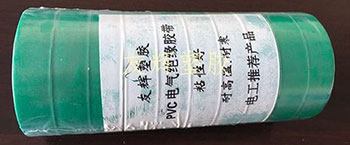 友辉塑胶
PVC电气绝缘胶带
粘性好
耐高温,耐寒
电工推荐产品